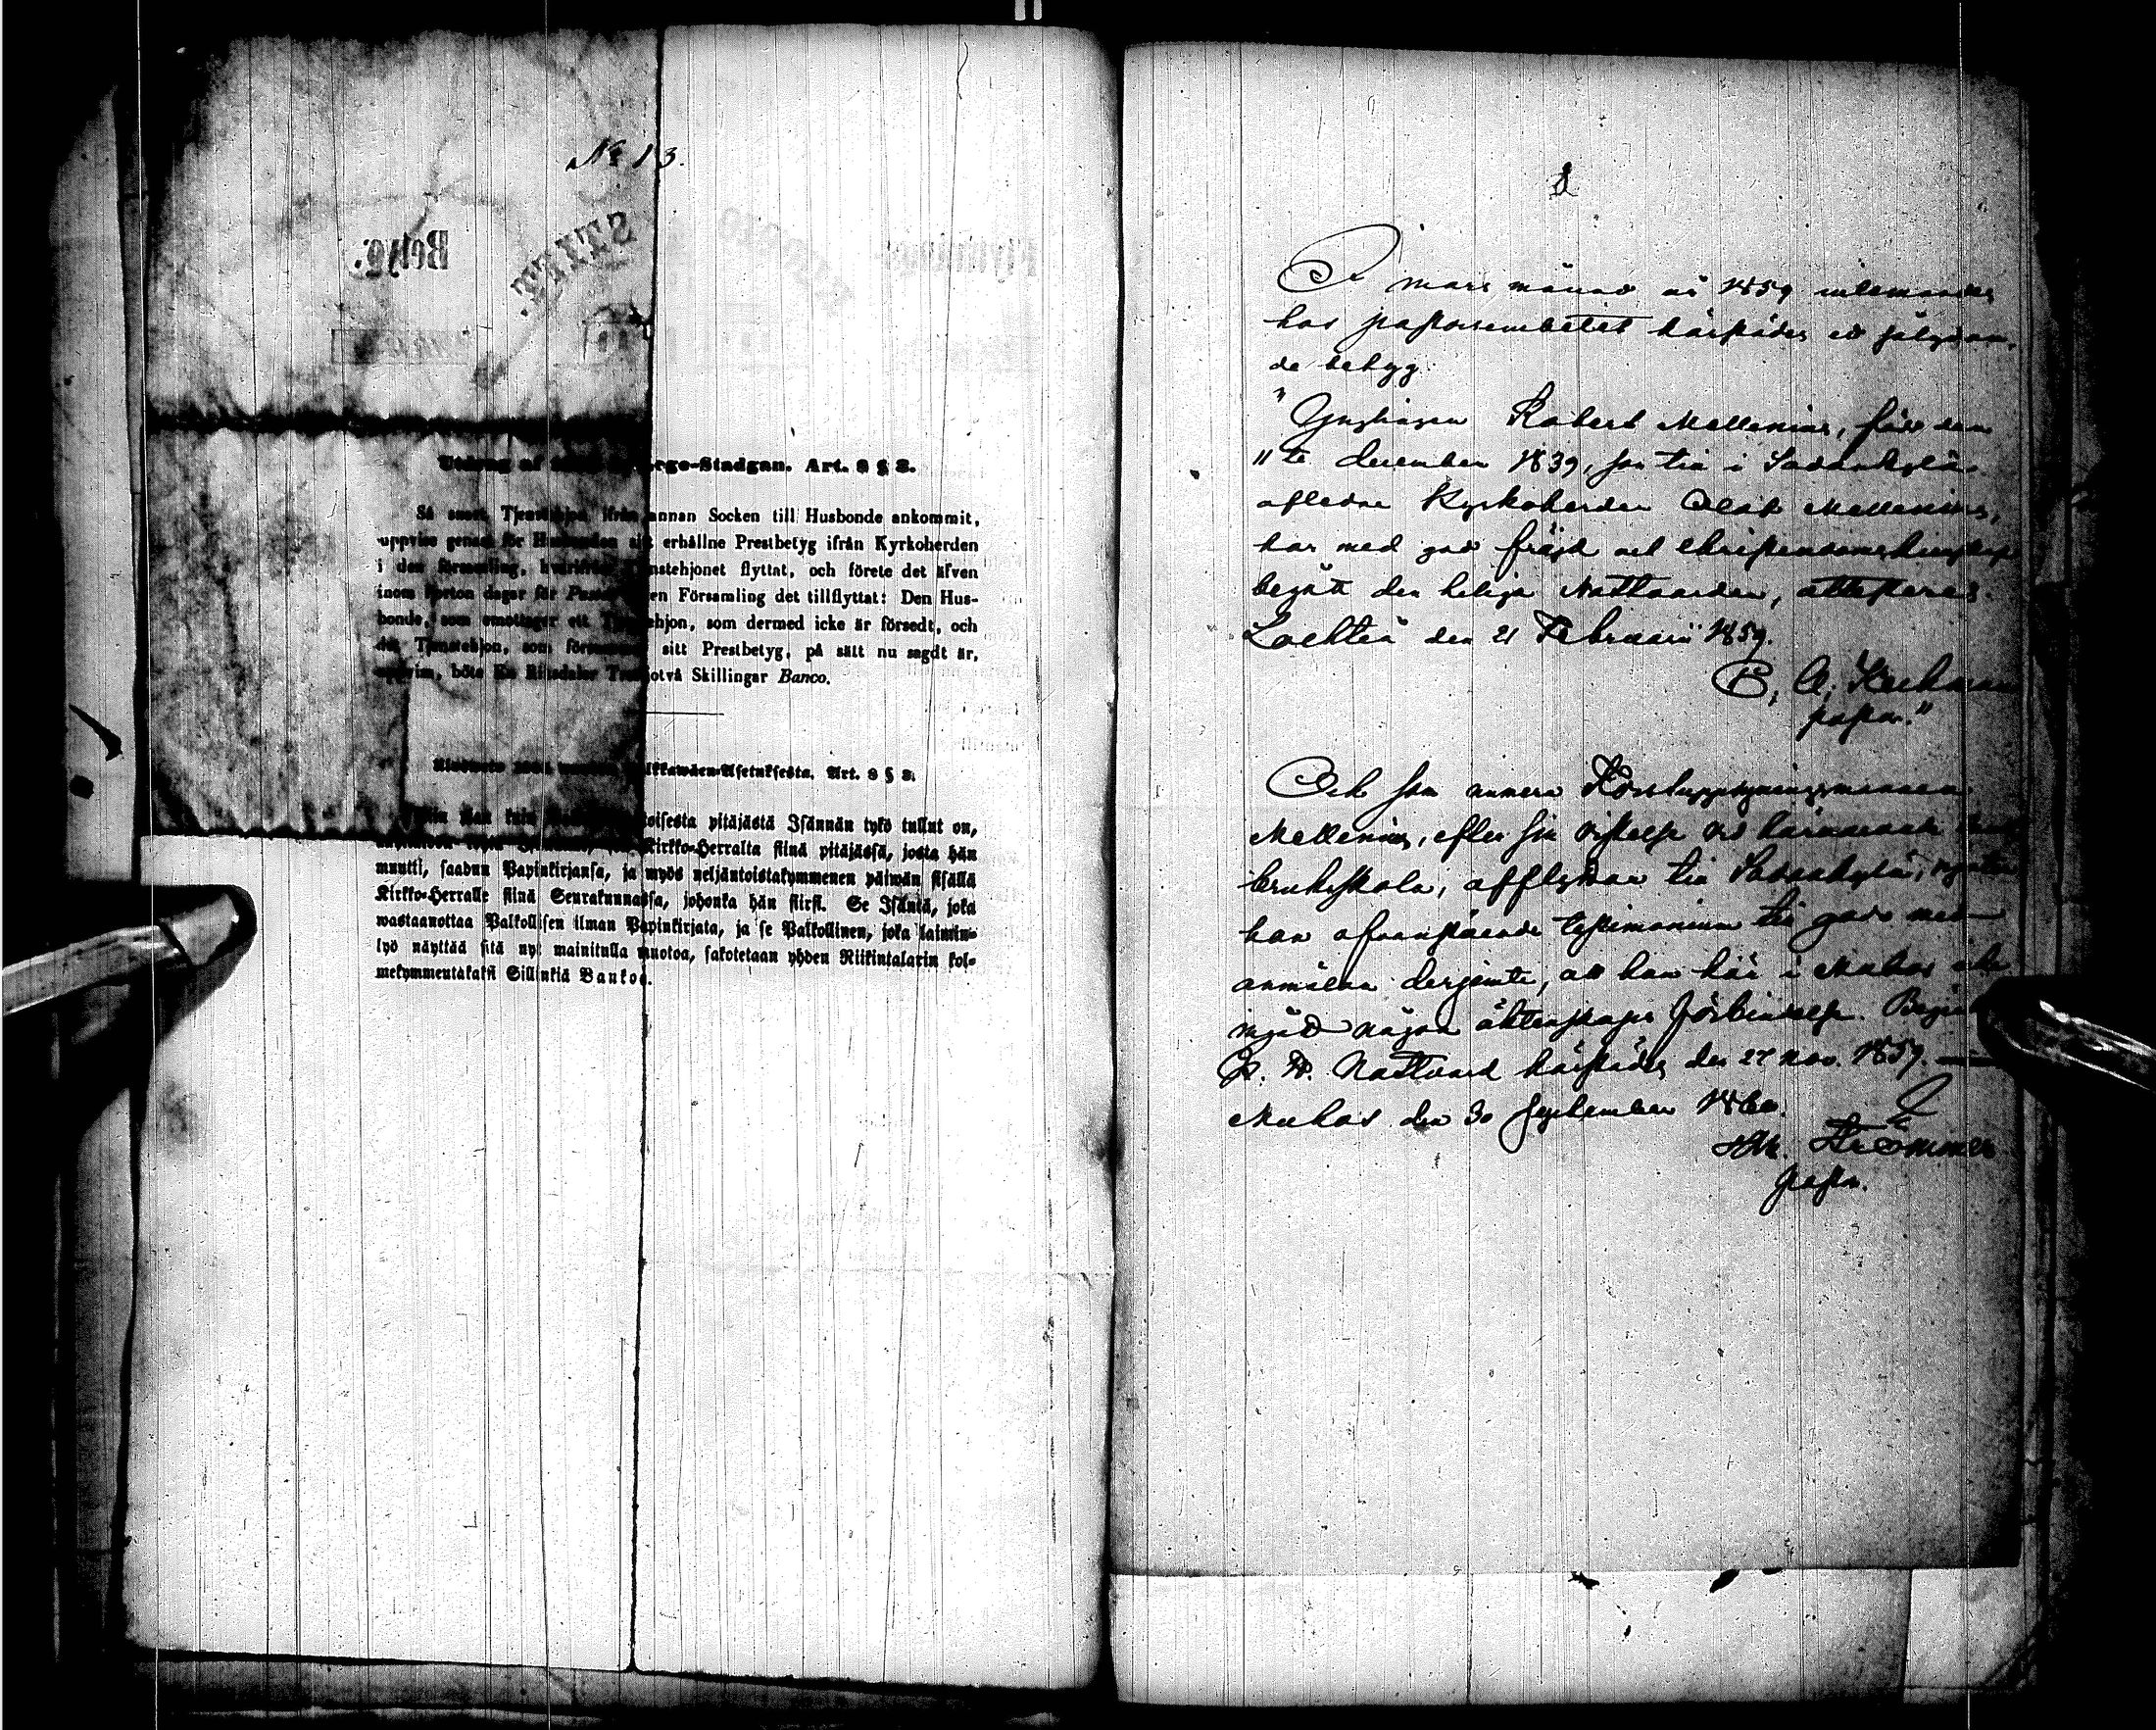 No 13.
Betyg.
STIFT.
Art. 8 § 8.
Så snart Tjenstehjon ifrån annan Socken till Husbonde ankommit,
uppvise genast för Husbonden sitt erhållne Prestbetyg ifrån Kyrkoherden
i den församling, hvarifrån Tjenstehjonet flyttat, och förete det äfven
inom fjorton dagar för Församling det tillflyttat: Den Hus-
bonde, som emottager ett Tjenstehjon, som dermed icke är försedt, och
det Tjenstehjon, som sitt Prestbetyg, på sätt nu sagdt är,
böte En Riksdaler Trettiotvå Skillingar Banco.
Palkkawäen-Asetuksesta. Art. 8 § 8.
toisesta pitäjästä Isännän tykö tullut on,
Kirkko-Herralta siinä pitäjässä, josta hän
muutti, saadun Papinkirjansa, ja myös neljäntoistakymmenen päiwän sisällä
Kirkko-Herralle siinä Seurakunnassa, johonka hän siirsi. Se Isäntä, joka
wastaanottaa Palkollisen ilman Papinkirjata, ja se Palkollinen, joka laimin-
lyö näyttää sitä nyt mainitulla muotoa, sakotetaan yhden Riikintalarin kol-
mekymmentäkaksi Sillinkiä Bankoa.
I mars månad år 1859 inlemnades
hos pastorsembetet härstädes ett följan-
de betyg:
"Ynglingen Robert Mellenius, född den
11te december 1839, son till i Sodankylä
aflidne Kyrkoherden Olof Mellenius,
har med god fräjd och christendomskunskap
begått den heliga Nattvarden, attesteras.
Lochteå den 21 Februarii 1859.
pastor."
Och som numera
Mellenius, efter sin vistelse vid härvarande
bruksskola, afflyttar till Sodankylä,
han ofvanstående testimonium till godo med
anmälan derjemte, att han här i Muhos icke
ingått någon äktenskaps förbindelse. Begått
H. H. Nattvard härstädes den 27 nov. 1859.
Muhos den 30 September 1860.
pastor.